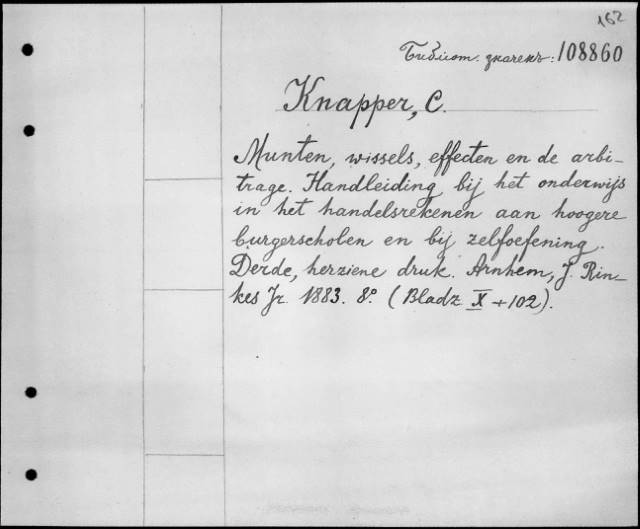 162
Библіот. значекъ: 108860
Knapper, C.
Munten, wissels, effecten en de arbi-
trage. Handleiding bij het onderwijs
in het handelsrekenen aan hoogere
burgerscholen en bij zelfoefening.
Derde, herziene druk. Arnhem, J. Rin-
kes Jr. 1883. 8º. (Bladz X + 102).